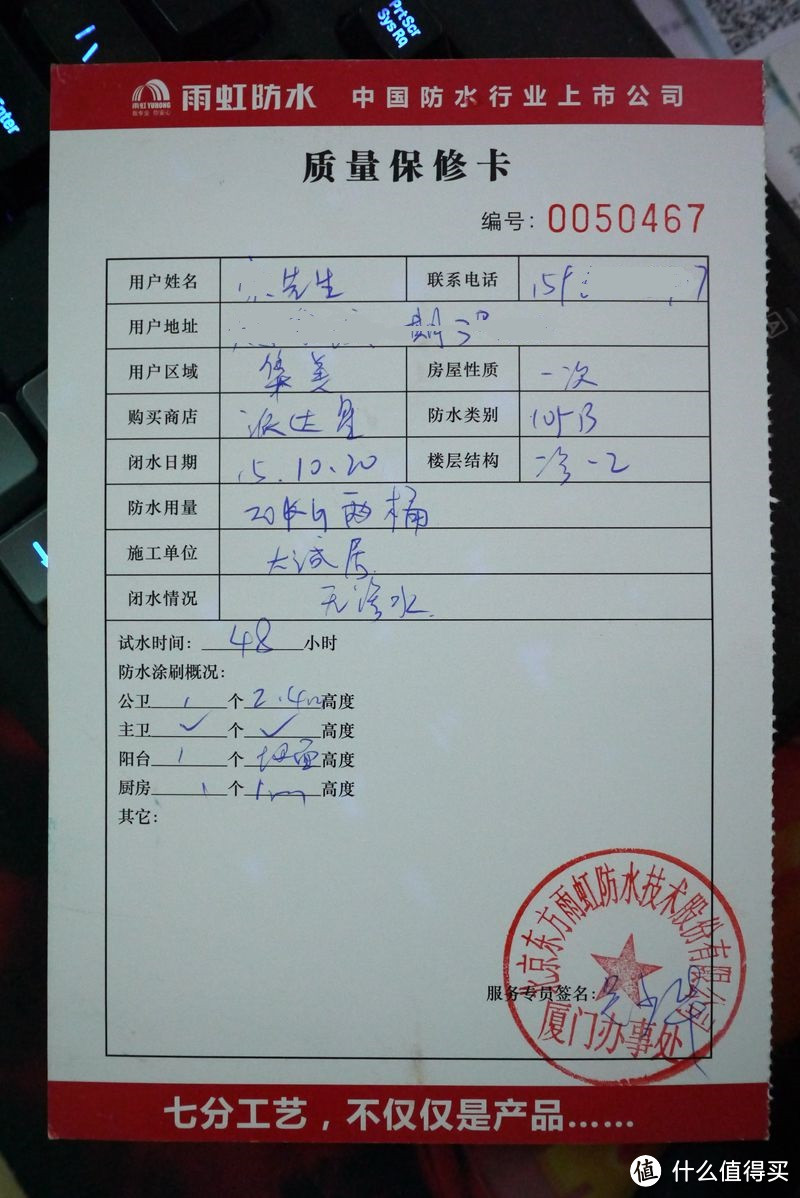 PrtScr
SysRq
Enter
雨虹 YUHONG
雨虹防水 中国防水行业上市公司
质量保修卡
编号：0050467
用户姓名 先生 联系电话
用户地址
用户区域 集美 房屋性质 一次
购买商店 派达星 防水类别 105B
闭水日期 15.10.20 楼层结构
防水用量 20KG两桶
施工单位 大诚居
闭水情况 无渗水
试水时间：48小时
防水涂刷概况：
公卫 1 个 2.4m 高度
主卫 ✓ 个 ✓ 高度
阳台 1 个 地面 高度
厨房 1 个 1m 高度
其它：
北京东方雨虹防水技术股份有限公司
服务专员签名：
厦门办事处
七分工艺，不仅仅是产品……
值 什么值得买